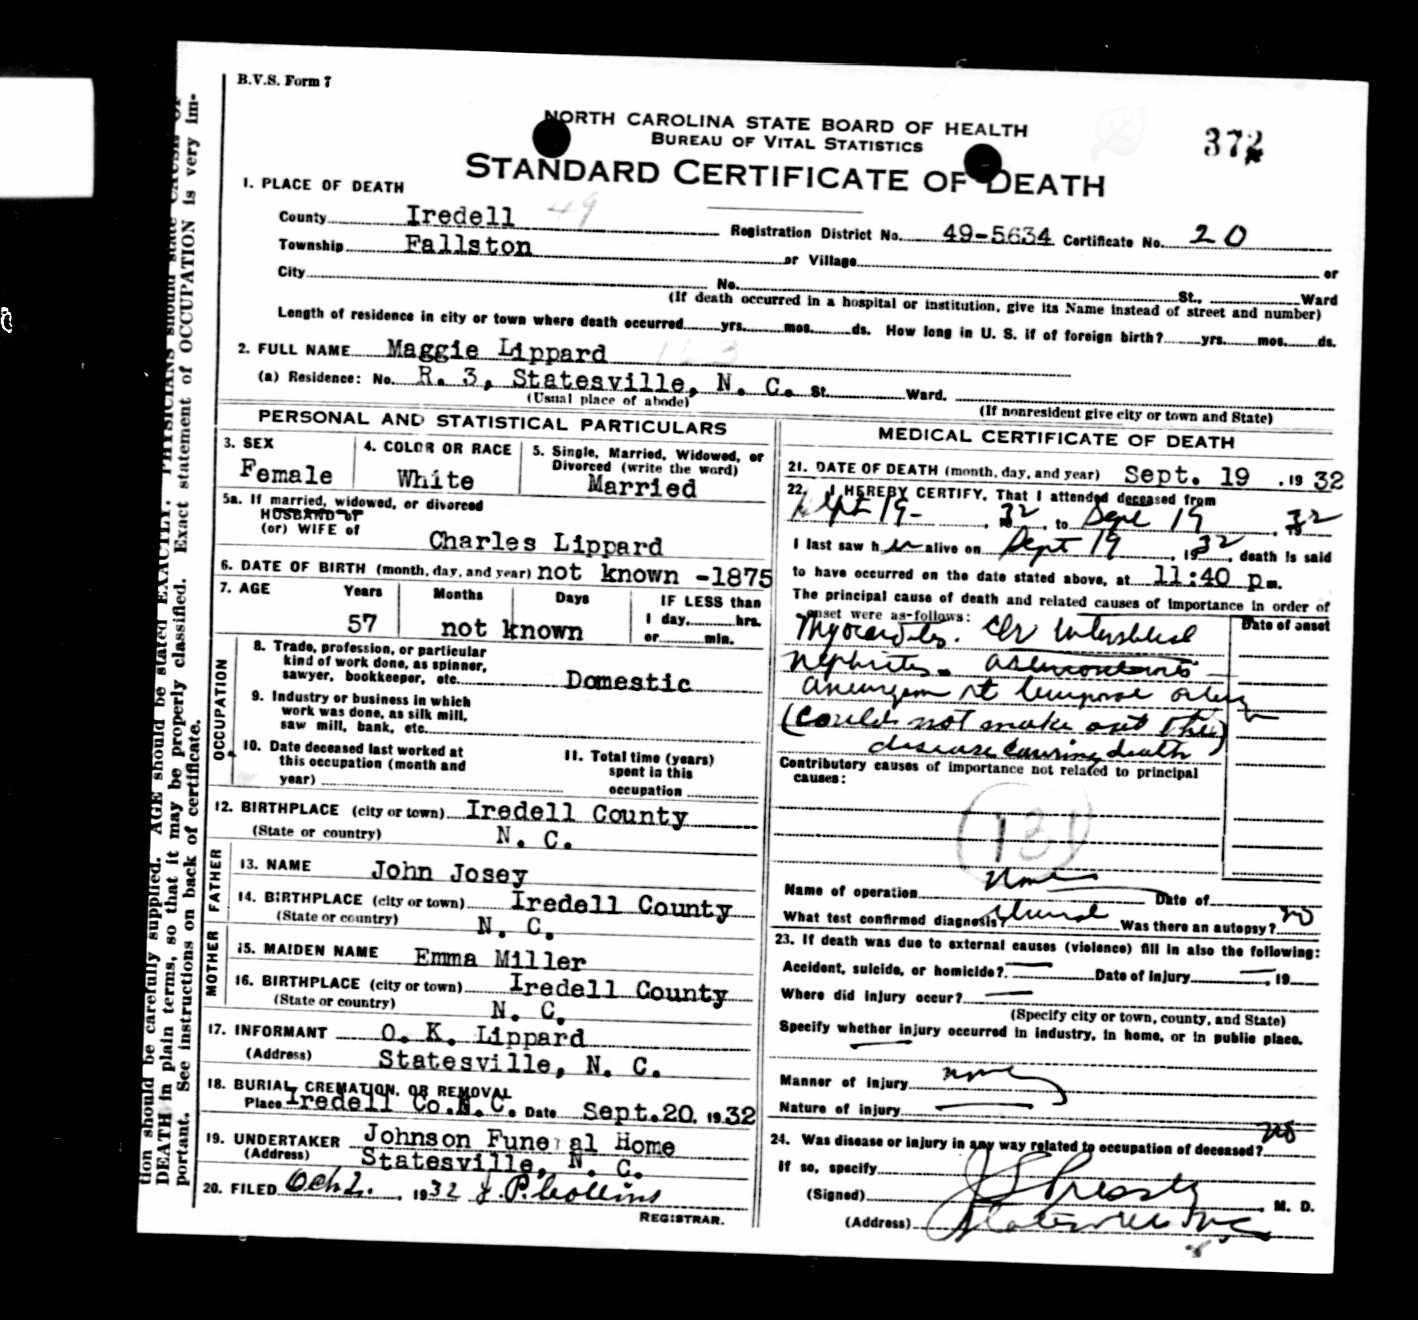 B.V.S. Form 7
NORTH CAROLINA STATE BOARD OF HEALTH
BUREAU OF VITAL STATISTICS
372
STANDARD CERTIFICATE OF DEATH
1. PLACE OF DEATH
County Iredell 49 Registration District No. 49-5634 Certificate No. 20
Township Fallston or Village or
City No. St., Ward
(If death occurred in a hospital or institution, give its Name instead of street and number)
Length of residence in city or town where death occurred yrs. mos. ds. How long in U. S. if of foreign birth? yrs. mos. ds.
2. FULL NAME Maggie Lippard
(a) Residence: No. R. 3, Statesville, N. C. St. Ward.
(Usual place of abode) (If nonresident give city or town and State)
PERSONAL AND STATISTICAL PARTICULARS
3. SEX Female
4. COLOR OR RACE White
5. Single, Married, Widowed, or
Divorced (write the word)
Married
5a. If married, widowed, or divorced
HUSBAND of
(or) WIFE of Charles Lippard
6. DATE OF BIRTH (month, day, and year) not known -1875
7. AGE Years Months Days IF LESS than
1 day, hrs.
57 not known or min.
OCCUPATION
8. Trade, profession, or particular
kind of work done, as spinner,
sawyer, bookkeeper, etc. Domestic
9. Industry or business in which
work was done, as silk mill,
saw mill, bank, etc.
10. Date deceased last worked at
this occupation (month and
year)
11. Total time (years)
spent in this
occupation
12. BIRTHPLACE (city or town) Iredell County
(State or country) N. C.
FATHER
13. NAME John Josey
14. BIRTHPLACE (city or town) Iredell County
(State or country) N. C.
MOTHER
15. MAIDEN NAME Emma Miller
16. BIRTHPLACE (city or town) Iredell County
(State or country) N. C.
17. INFORMANT O. K. Lippard
(Address) Statesville, N. C.
18. BURIAL, CREMATION, OR REMOVAL
Place Iredell Co.N.C. Date Sept.20, 1932
19. UNDERTAKER Johnson Funeral Home
(Address) Statesville, N. C.
20. FILED Oct 2, 1932 J. P. Collins
REGISTRAR.
MEDICAL CERTIFICATE OF DEATH
21. DATE OF DEATH (month, day, and year) Sept. 19, 1932
22. I HEREBY CERTIFY, That I attended deceased from
Sept 19-, 32 to Sept 19, 32
I last saw her alive on Sept 19, 1932, death is said
to have occurred on the date stated above, at 11:40 p m.
The principal cause of death and related causes of importance in order of
onset were as follows: Date of onset
Myocarditis. Chr Interstitial
nephritis.
aneurysm rt temporal artery
(could not make out the
disease causing death)
Contributory causes of importance not related to principal
causes:
131
Name of operation None Date of
What test confirmed diagnosis? Was there an autopsy? no
23. If death was due to external causes (violence) fill in also the following:
Accident, suicide, or homicide? Date of injury 19
Where did injury occur?
(Specify city or town, county, and State)
Specify whether injury occurred in industry, in home, or in public place.
Manner of injury none
Nature of injury
24. Was disease or injury in any way related to occupation of deceased? no
If so, specify
(Signed) J S Pressly, M. D.
(Address) Statesville N C
tion should be carefully supplied. AGE should be stated EXACTLY. PHYSICIANS should state CAUSE OF
DEATH in plain terms, so that it may be properly classified. Exact statement of OCCUPATION is very im-
portant. See instructions on back of certificate.